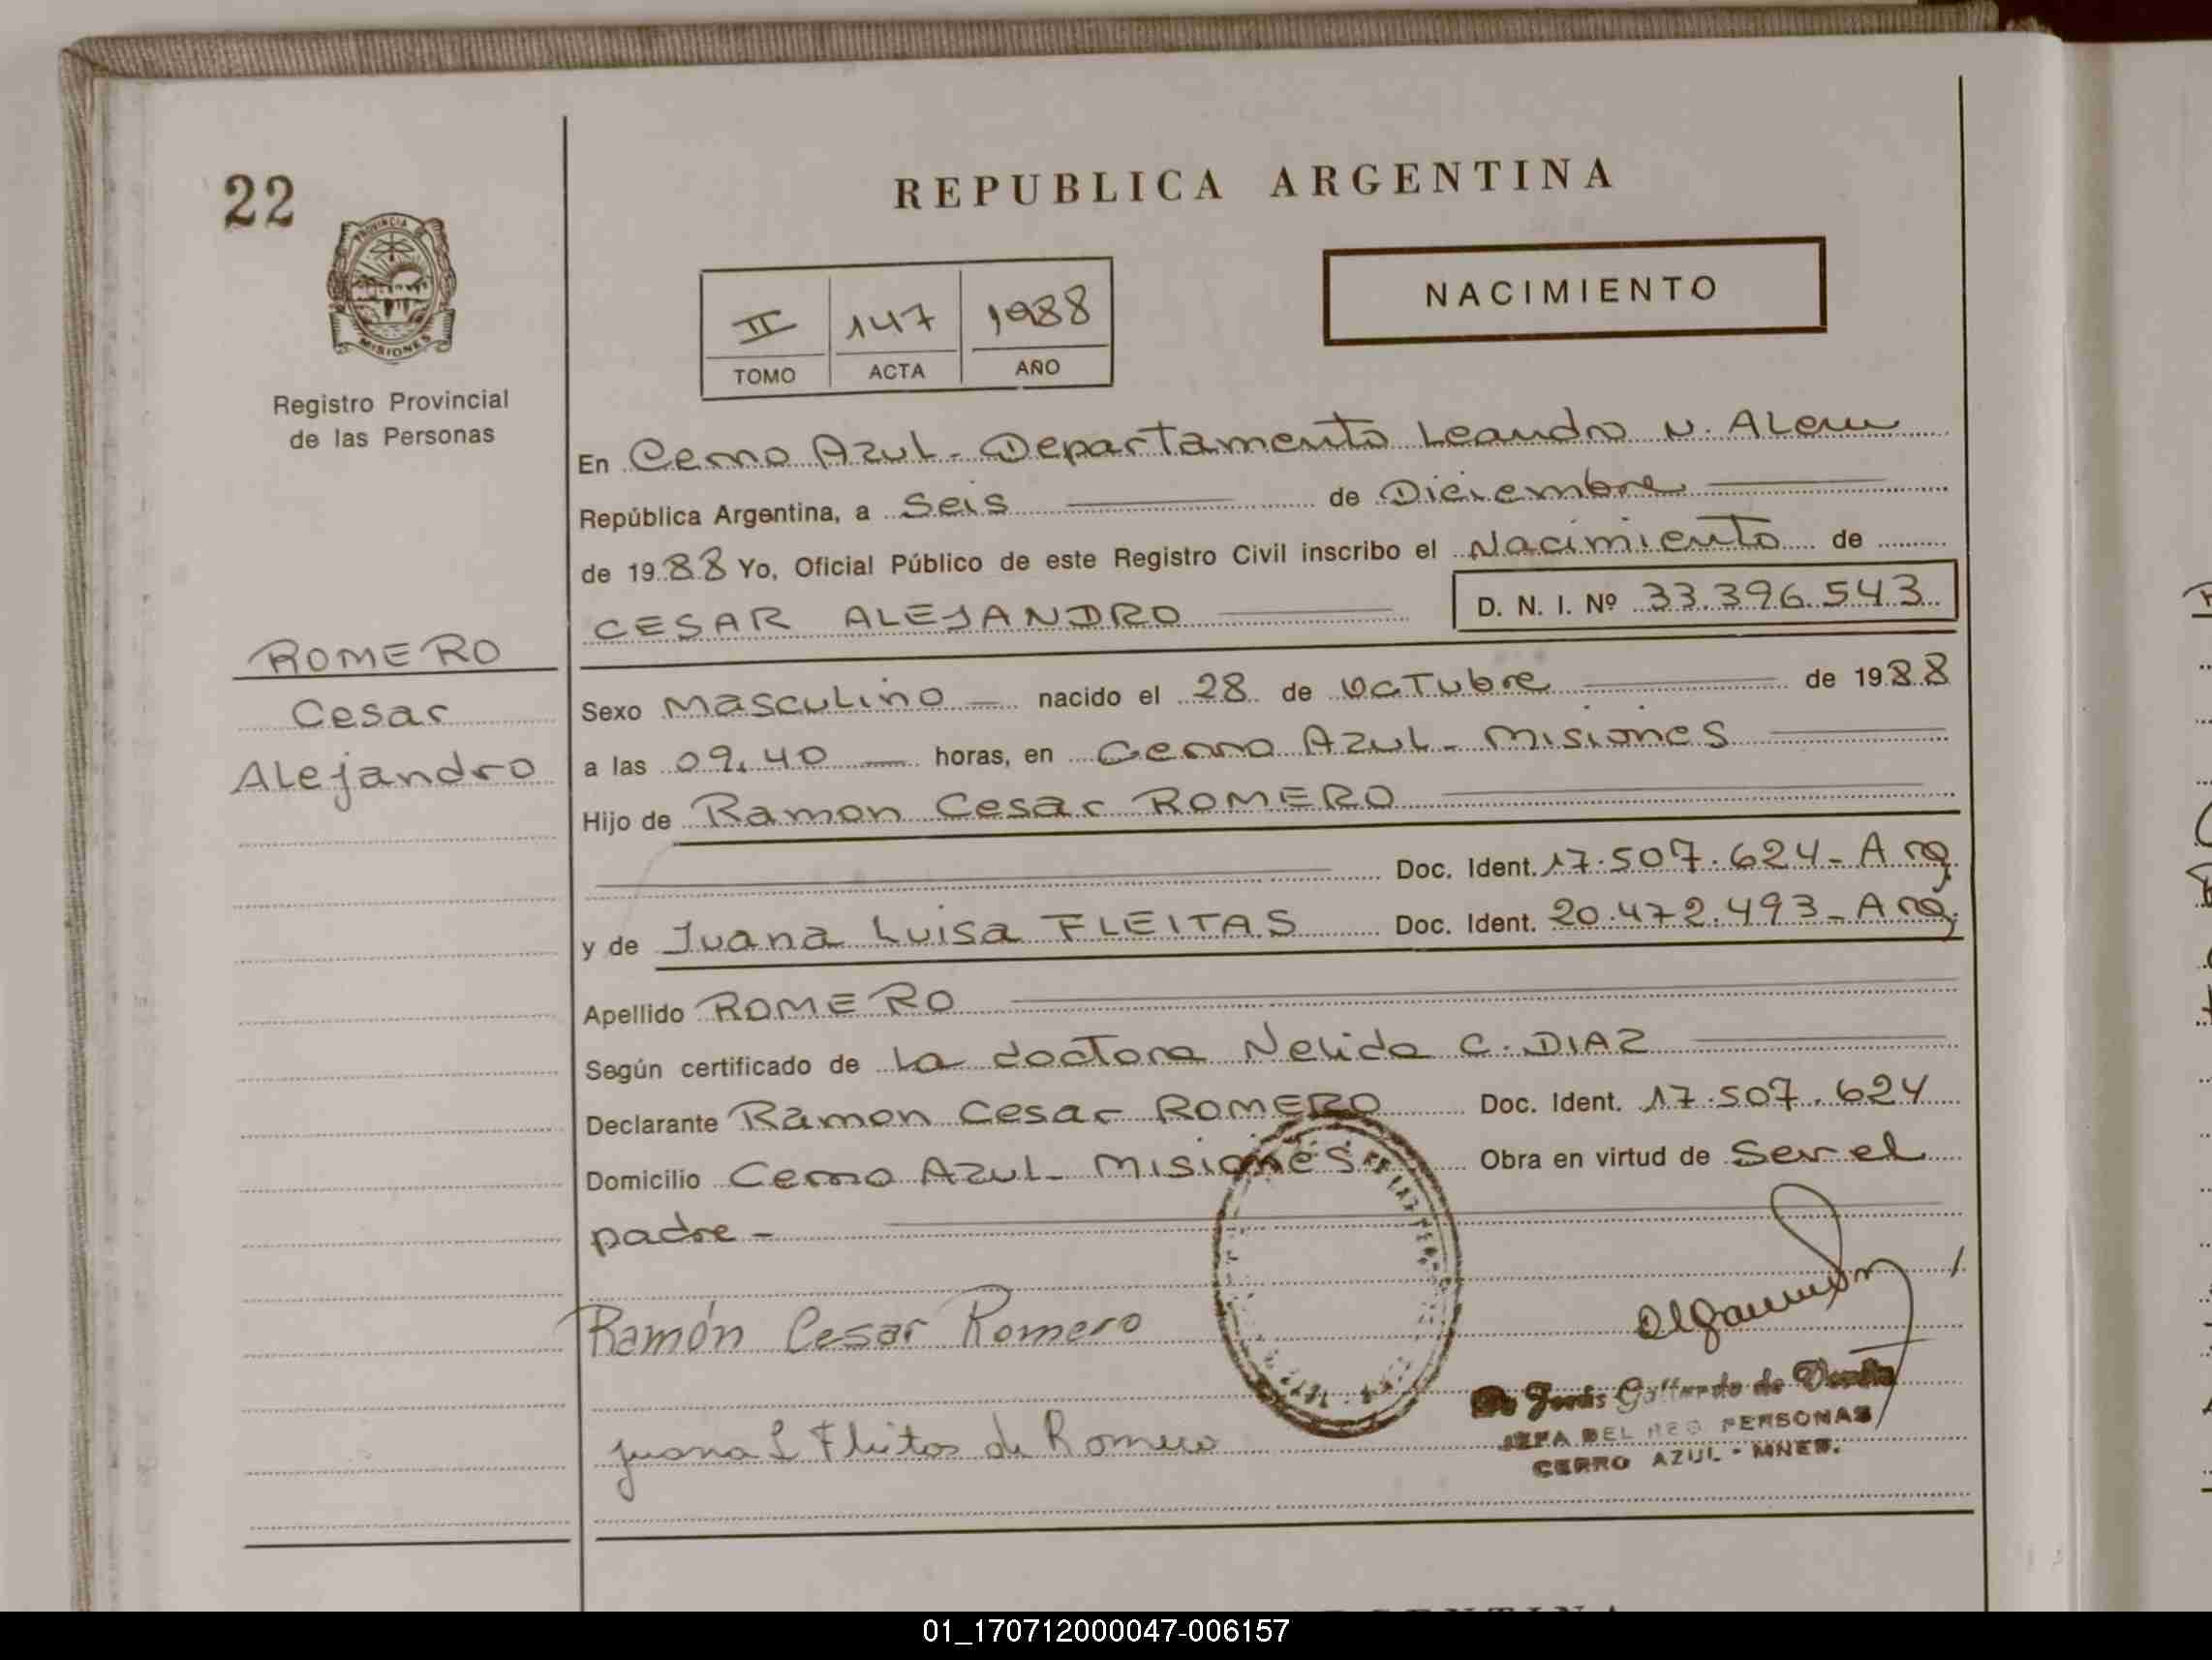 22
PROVINCIA DE
MISIONES
Registro Provincial
de las Personas
REPUBLICA ARGENTINA
II 147 1988
TOMO ACTA AÑO
NACIMIENTO
En Cerro Azul - Departamento Leandro N. Alem
República Argentina, a Seis de Diciembre
de 1988 Yo, Oficial Público de este Registro Civil inscribo el Nacimiento de
CESAR ALEJANDRO D. N. I. Nº 33.396.543
ROMERO
Cesar
Alejandro
Sexo Masculino nacido el 28 de Octubre de 1988
a las 09.40 horas, en Cerro Azul - Misiones
Hijo de Ramon Cesar ROMERO
Doc. Ident. 17.507.624 - Arg.
y de Juana Luisa FLEITAS Doc. Ident. 20.472.493 - Arg.
Apellido ROMERO
Según certificado de la doctora Nelida C. DIAZ
Declarante Ramon Cesar ROMERO Doc. Ident. 17.507.624
Domicilio Cerro Azul - Misiones Obra en virtud de Ser el
padre -
Ramón Cesar Romero
Juana L Fleitas de Romero
Jesús Gallardo de
JEFA DEL REG PERSONAS
CERRO AZUL - MNES.
01_170712000047-006157